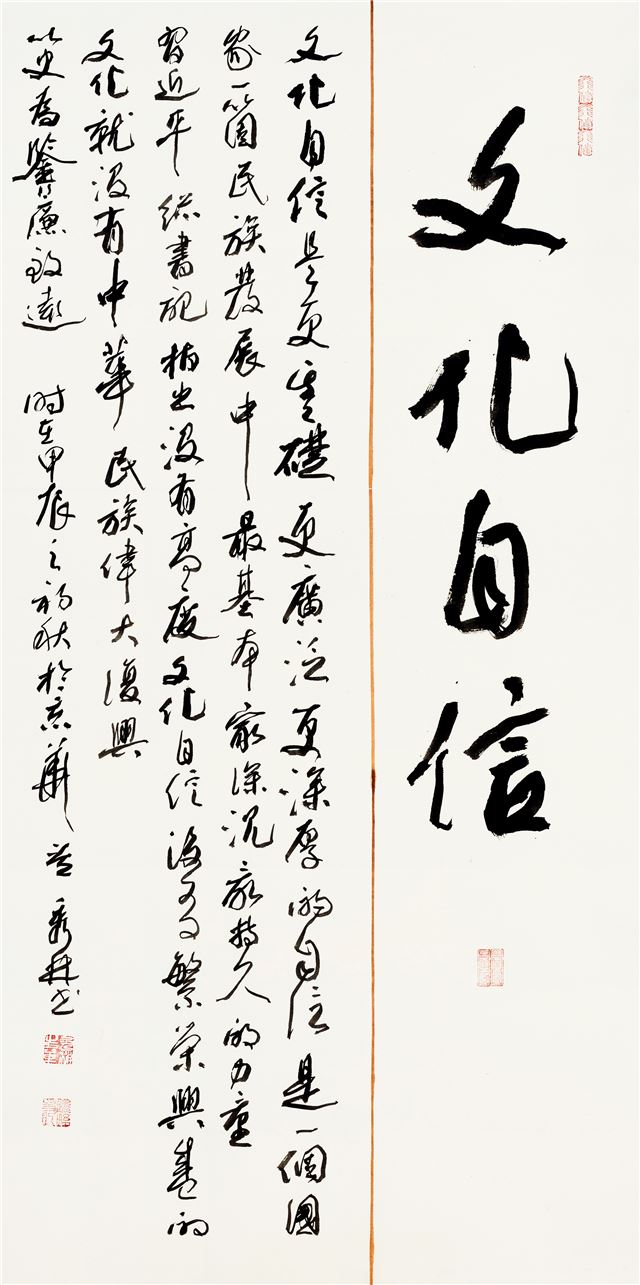 文化自信
文化自信是更基礎更廣泛更深厚的自信是一個國
家一箇民族發展中最基本最深沉最持久的力量
習近平總書記指出没有高度文化自信没有繁榮興盛的
文化就没有中華民族偉大復興
以史為鑒廉致遠 時在甲辰之初秋於京華